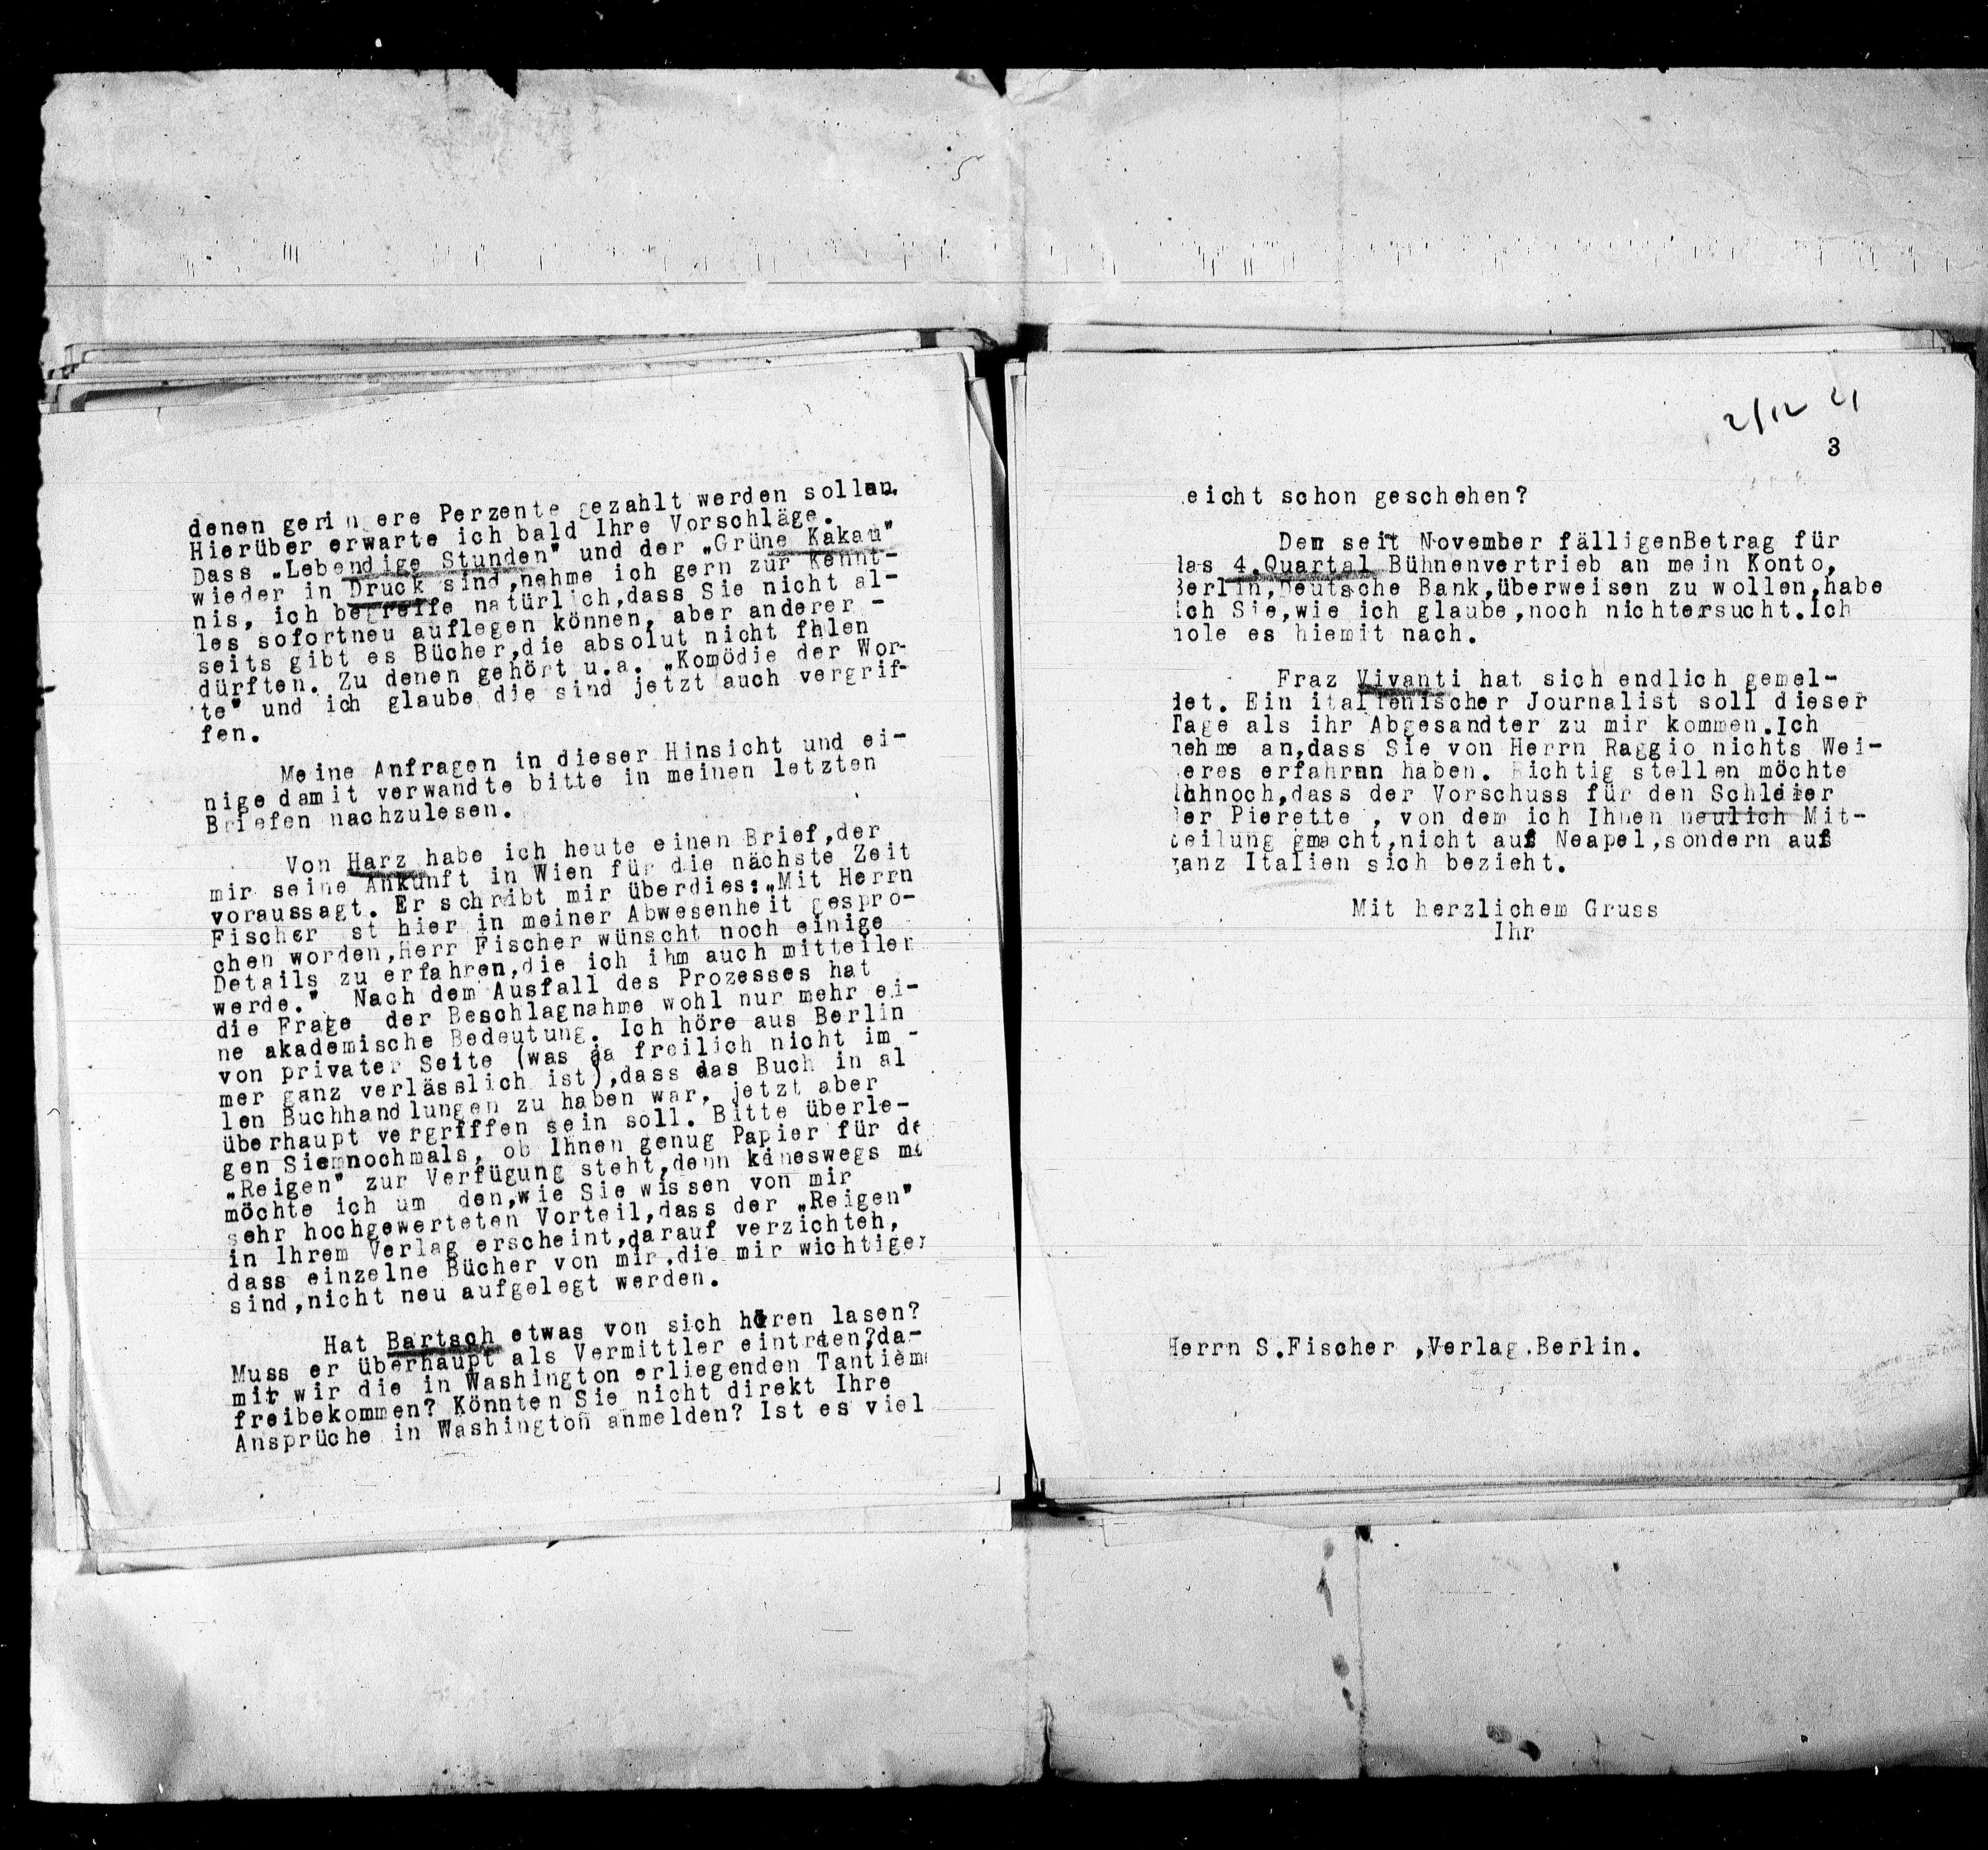 denen geringere Perzente gezahlt werden sollen.
Hierüber erwarte ich bald Ihre Vorschläge.
Dass „Lebendige Stunden" und der „Grüne Kakadu"
wieder in Druck sind,nehme ich gern zur Kennt-
nis, ich begreife natürlich,dass Sie nicht al-
les sofortneu auflegen können, aber anderer -
seits gibt es Bücher,die absolut nicht fhlen
dürften. Zu denen gehört u.a. „Komödie der Wor-
te" und ich glaube die sind jetzt auch vergrif-
fen.
Meine Anfragen in dieser Hinsicht und ei-
nige damit verwandte bitte in meinen letzten
Briefen nachzulesen.
Von Harz habe ich heute einen Brief,der
mir seine Ankunft in Wien für die nächste Zeit
voraussagt. Er schribt mir überdies:„Mit Herrn
Fischer st hier in meiner Abwesenheit gespro-
chen worden,Herr Fischer wünscht noch einige
Details zu erfahren,die ich ihm auch mitteilen
werde." Nach dem Ausfall des Prozesses hat
die Frage der Beschlagnahme wohl nur mehr ei-
ne akademische Bedeutung. Ich höre aus Berlin
von privater Seite (was ja freilich nicht im -
mer ganz verlässlich ist),dass das Buch in al
len Buchhandlungen zu haben war, jetzt aber
überhaupt vergriffen sein soll. Bitte überle-
gen Siemnochmals, ob Ihnen genug Papier für de
„Reigen" zur Verfügung steht,denn keineswegs mö
möchte ich um den,wie Sie wissen von mir
sehr hochgewerteten Vorteil,dass der „Reigen"
in Ihrem Verlag erscheint,darauf verzichteh,
dass einzelne Bücher von mir,die mir wichtiger
sind,nicht neu aufgelegt werden.
Hat Bartsch etwas von sich hören lasen?
Muss er überhaupt als Vermittler eintreten?da-
mit wir die in Washington erliegenden Tantieme
freibekommen? Könnten Sie nicht direkt Ihre
Ansprüche in Washington anmelden? Ist es viel
2/12 21
3
eicht schon geschehen?
Den seit November fälligenBetrag für
das 4.Quartal Bühnenvertrieb an mein Konto,
Berlin,Deutsche Bank,überweisen zu wollen,habe
ich Sie,wie ich glaube,noch nichtersucht.Ich
hole es hiemit nach.
Fraz Vivanti hat sich endlich gemel-
det. Ein italienischer Journalist soll dieser
Tage als ihr Abgesandter zu mir kommen.Ich
nehme an,dass Sie von Herrn Raggio nichts Wei-
eres erfahren haben. Richtig stellen möchte
ichnoch,dass der Vorschuss für den Schleier
der Pierette , von dem ich Ihnen neulich Mit-
teilung gmacht,nicht auf Neapel,sondern auf
ganz Italien sich bezieht.
Mit herzlichem Gruss
Ihr
Herrn S.Fischer ,Verlag.Berlin.